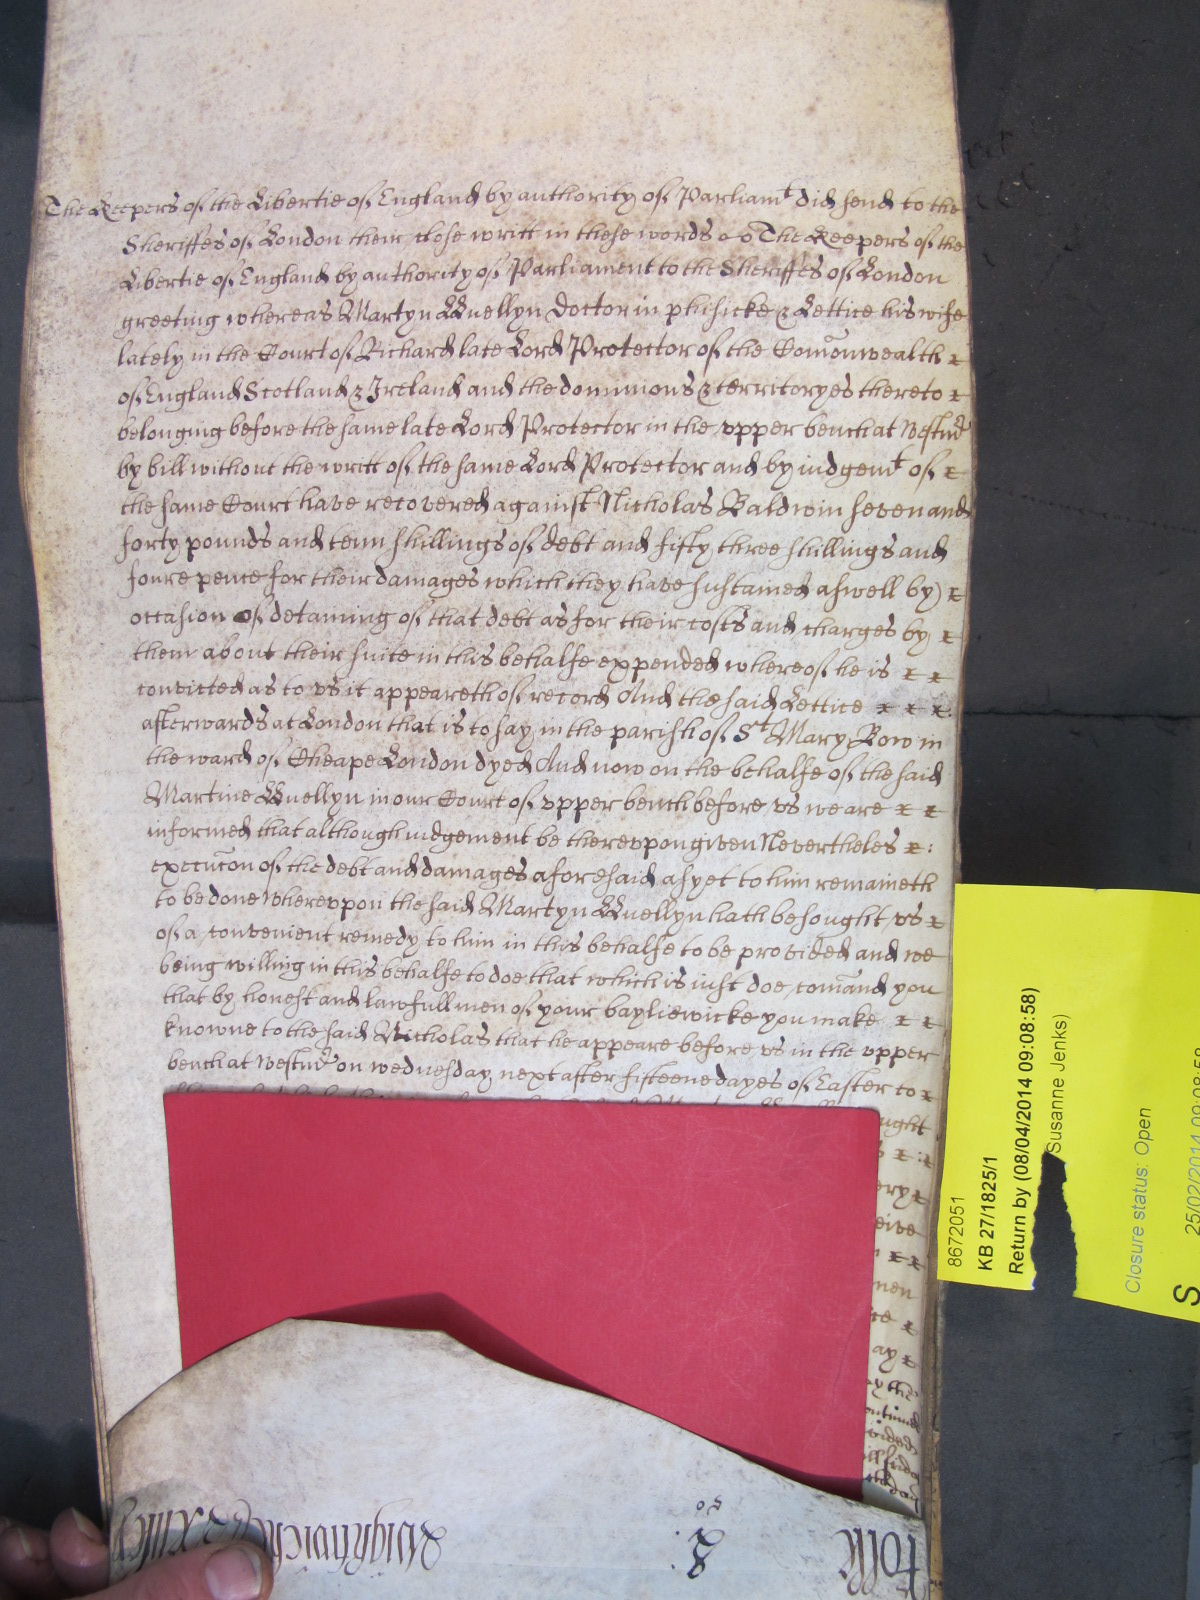 The Keepers of the Libertie of England by authority of Parliamt did send to the
Sheriffes of London their close writt in these words The Keepers of the
Libertie of England by authority of Parliament to the Sheriffes of London
greeting whereas Martyn LLuellyn Doctor in phisicke & Lettice his wife
lately in the Court of Richard late Lord Protector of the Comonwealth
of England Scotland & Ireland and the dominions & territoryes thereto
belonging before the same late Lord Protector in the vpper bench at Westmr
by bill without the writt of the same Lord Protector and by iudgemt of
the same Court have recovered against Nicholas Baldwin seven and
forty pounds and tenn shillings of debt and fifty three shillings and
foure pence for their damages which they have sustained aswell by
occasion of detaining of that debt as for their costs and charges by
them about their suite in this behalfe expended whereof he is
convicted as to vs it appeareth of record And the said Lettice
afterwards at London that is to say in the parish of St Mary Bow in
the ward of Cheape London dyed And now on the behalfe of the said
Martine LLuellyn in our Court of vpper bench before vs we are
informed that although iudgement be therevpon given Nevertheles
execucon of the debt and damages aforesaid as yet to him remaineth
to be done Wherevpon the said Martyn LLuellyn hath besought vs
of a convenient remedy to him in this behalfe to be provided and we
being willing in this behalfe to doe that which is iust doe comand you
that by honest and lawfull men of your bayliewicke you make
knowne to the said Nicholas that he appeare before vs in the vpper
bench at Westmr on wednesday next after fifteene dayes of Easter to
ought
ery
eive
men
ay
8672051
KB 27/1825/1
Return by (08/04/2014 09:08:58)
Susanne Jenks)
Closure status: Open
25/02/2014 09:08:58
S